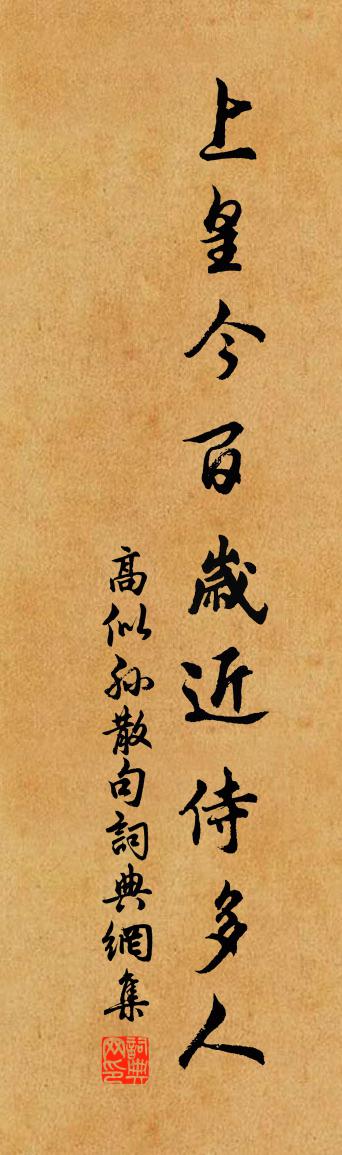 上皇今百歲近侍多人
高似孫散句詞典網集
詞典網印